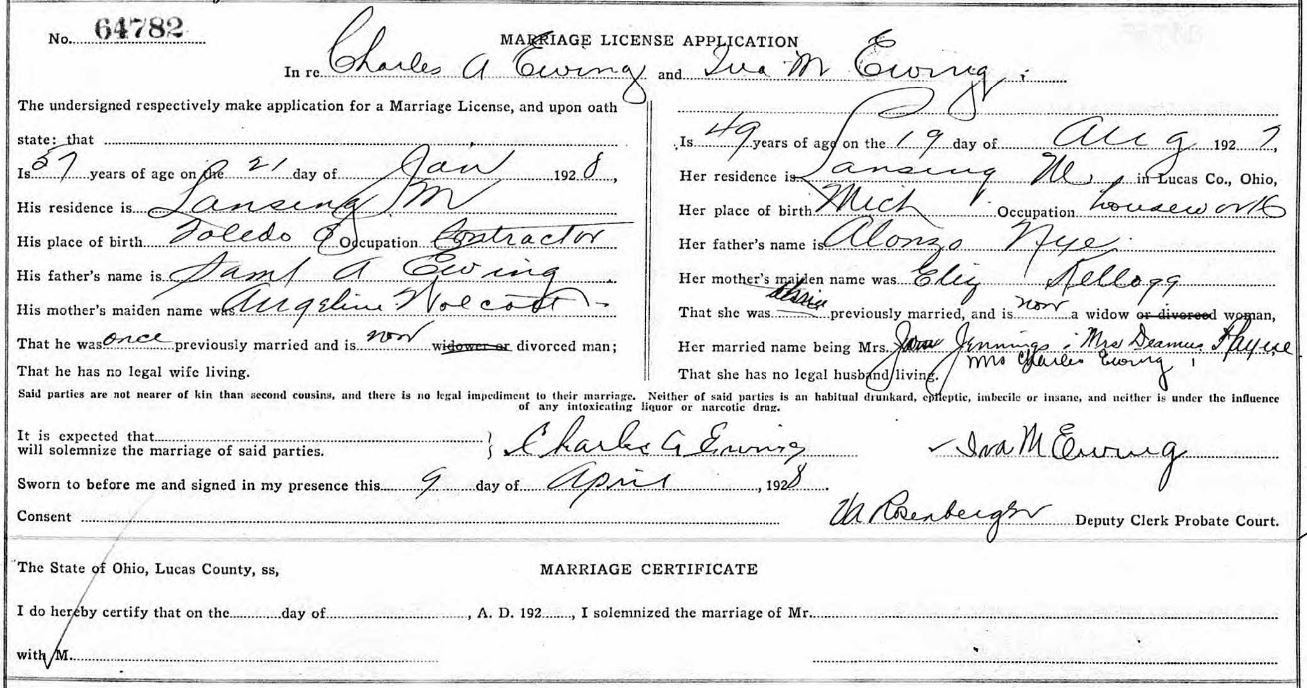 No. 64782
MARRIAGE LICENSE APPLICATION
In re Charles A Ewing and Iva M Ewing ;
The undersigned respectively make application for a Marriage License, and upon oath
state: that
Is 57 years of age on the 21 day of Jan 1928,
His residence is Lansing M
His place of birth Toledo O Occupation Contractor
His father's name is Saml A Ewing
His mother's maiden name was Angeline Wolcott
That he was once previously married and is now widower or divorced man;
That he has no legal wife living.
Is 49 years of age on the 19 day of Aug 1927,
Her residence is Lansing M, in Lucas Co., Ohio,
Her place of birth Mich Occupation housework
Her father's name is Alonzo Nye
Her mother's maiden name was Eliz Kellogg
That she was previously married, and is now a widow or divorced woman,
Her married name being Mrs. Jennings ; Mrs
Mrs Charles Ewing ;
That she has no legal husband living.
Said parties are not nearer of kin than second cousins, and there is no legal impediment to their marriage. Neither of said parties is an habitual drunkard, epileptic, imbecile or insane, and neither is under the influence
of any intoxicating liquor or narcotic drug.
It is expected that
will solemnize the marriage of said parties. } Charles A Ewing Iva M Ewing
Sworn to before me and signed in my presence this 9 day of April, 1928.
Consent M Rosenberger Deputy Clerk Probate Court.
The State of Ohio, Lucas County, ss,
MARRIAGE CERTIFICATE
I do hereby certify that on the day of , A. D. 192 , I solemnized the marriage of Mr.
with M.